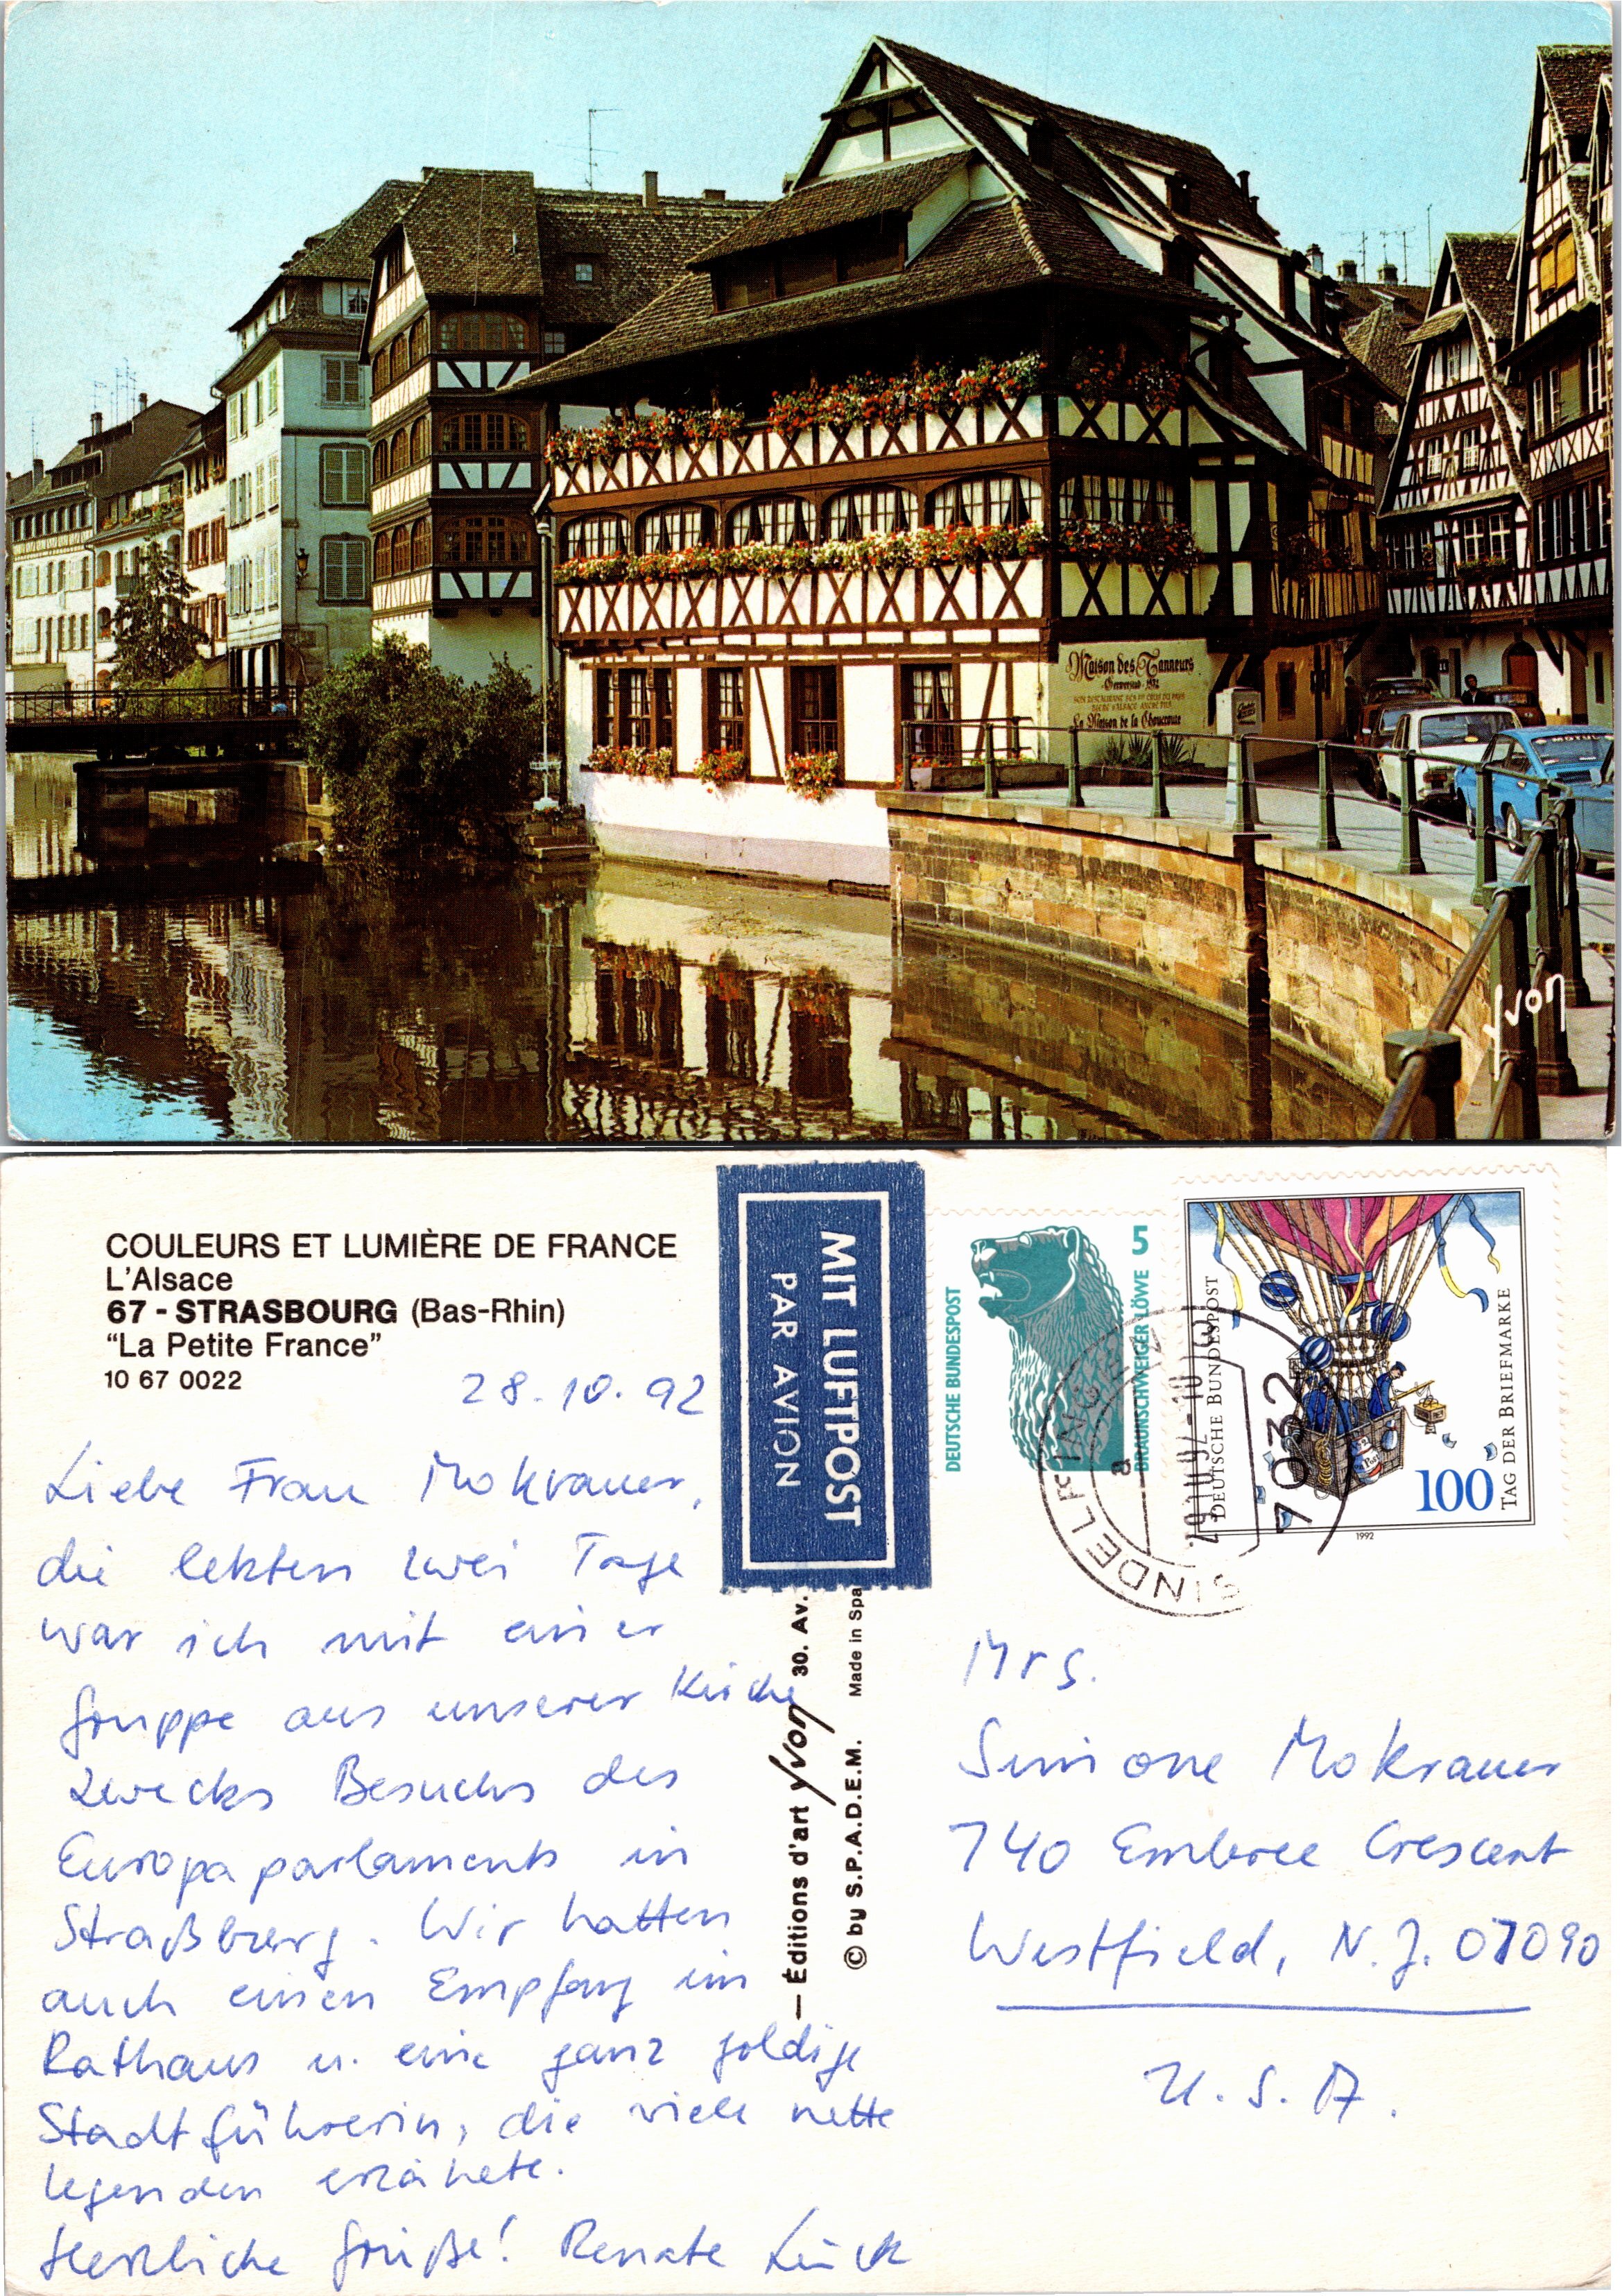 Maison des Tanneurs
Gerwerstub · 1572
La Maison de la Choucroute
MOTUL
Yvon
COULEURS ET LUMIÈRE DE FRANCE
L'Alsace
67 - STRASBOURG (Bas-Rhin)
"La Petite France"
10 67 0022
28.10.92
Liebe Frau Mokrauer,
die letzten zwei Tage
war ich mit einer
Gruppe aus unserer Kirche
zwecks Besuchs des
Europaparlaments in
Straßburg. Wir hatten
auch einen Empfang im
Rathaus u. eine ganz goldige
Stadtführerin, die viele nette
Legenden erzählte.
Herzliche Grüße! Renate Lück
MIT LUFTPOST
PAR AVION
— Éditions d'art Yvon 30. Av.
© by S.P.A.D.E.M. Made in Spa
DEUTSCHE BUNDESPOST
5
BRAUNSCHWEIGER LÖWE
DEUTSCHE BUNDESPOST
TAG DER BRIEFMARKE
100
1992
SINDELFINGEN
a
7032
Mrs.
Simone Mokrauer
740 Embree Crescent
Westfield, N.J. 07090
U.S.A.